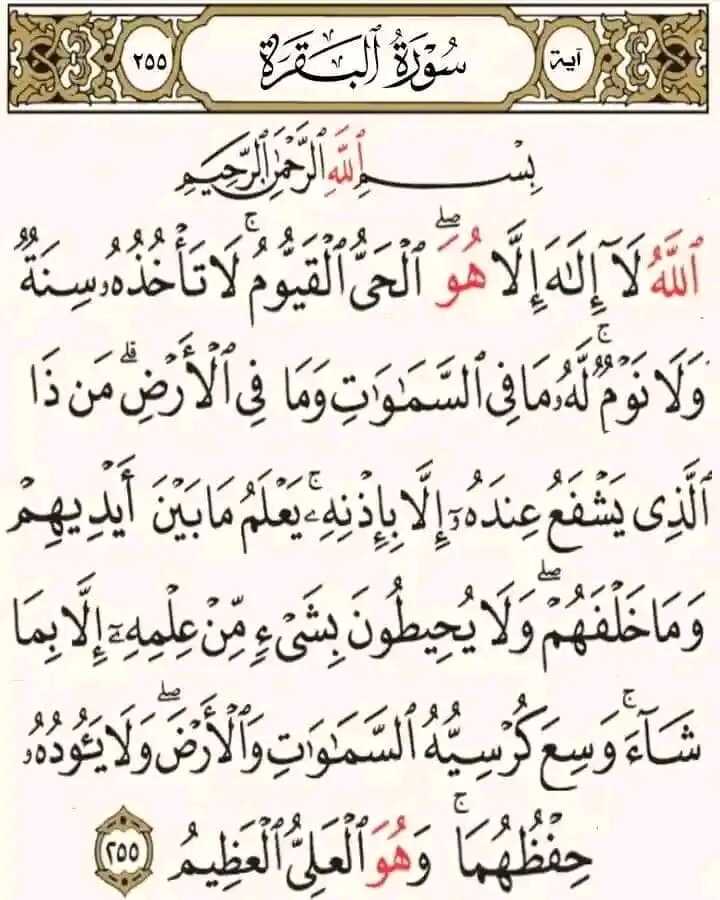 آية سُورَةُ ٱلْبَقَرَة ٢٥٥
بِسْمِ ٱللَّهِ ٱلرَّحْمَٰنِ ٱلرَّحِيمِ
ٱللَّهُ لَآ إِلَٰهَ إِلَّا هُوَ ۖ ٱلْحَىُّ ٱلْقَيُّومُ ۚ لَا تَأْخُذُهُۥ سِنَةٌ
وَلَا نَوْمٌ ۚ لَّهُۥ مَا فِى ٱلسَّمَٰوَٰتِ وَمَا فِى ٱلْأَرْضِ ۗ مَن ذَا
ٱلَّذِى يَشْفَعُ عِندَهُۥٓ إِلَّا بِإِذْنِهِۦ ۚ يَعْلَمُ مَا بَيْنَ أَيْدِيهِمْ
وَمَا خَلْفَهُمْ ۖ وَلَا يُحِيطُونَ بِشَىْءٍ مِّنْ عِلْمِهِۦٓ إِلَّا بِمَا
شَآءَ ۚ وَسِعَ كُرْسِيُّهُ ٱلسَّمَٰوَٰتِ وَٱلْأَرْضَ ۖ وَلَا يَـُٔودُهُۥ
حِفْظُهُمَا ۚ وَهُوَ ٱلْعَلِىُّ ٱلْعَظِيمُ ٢٥٥